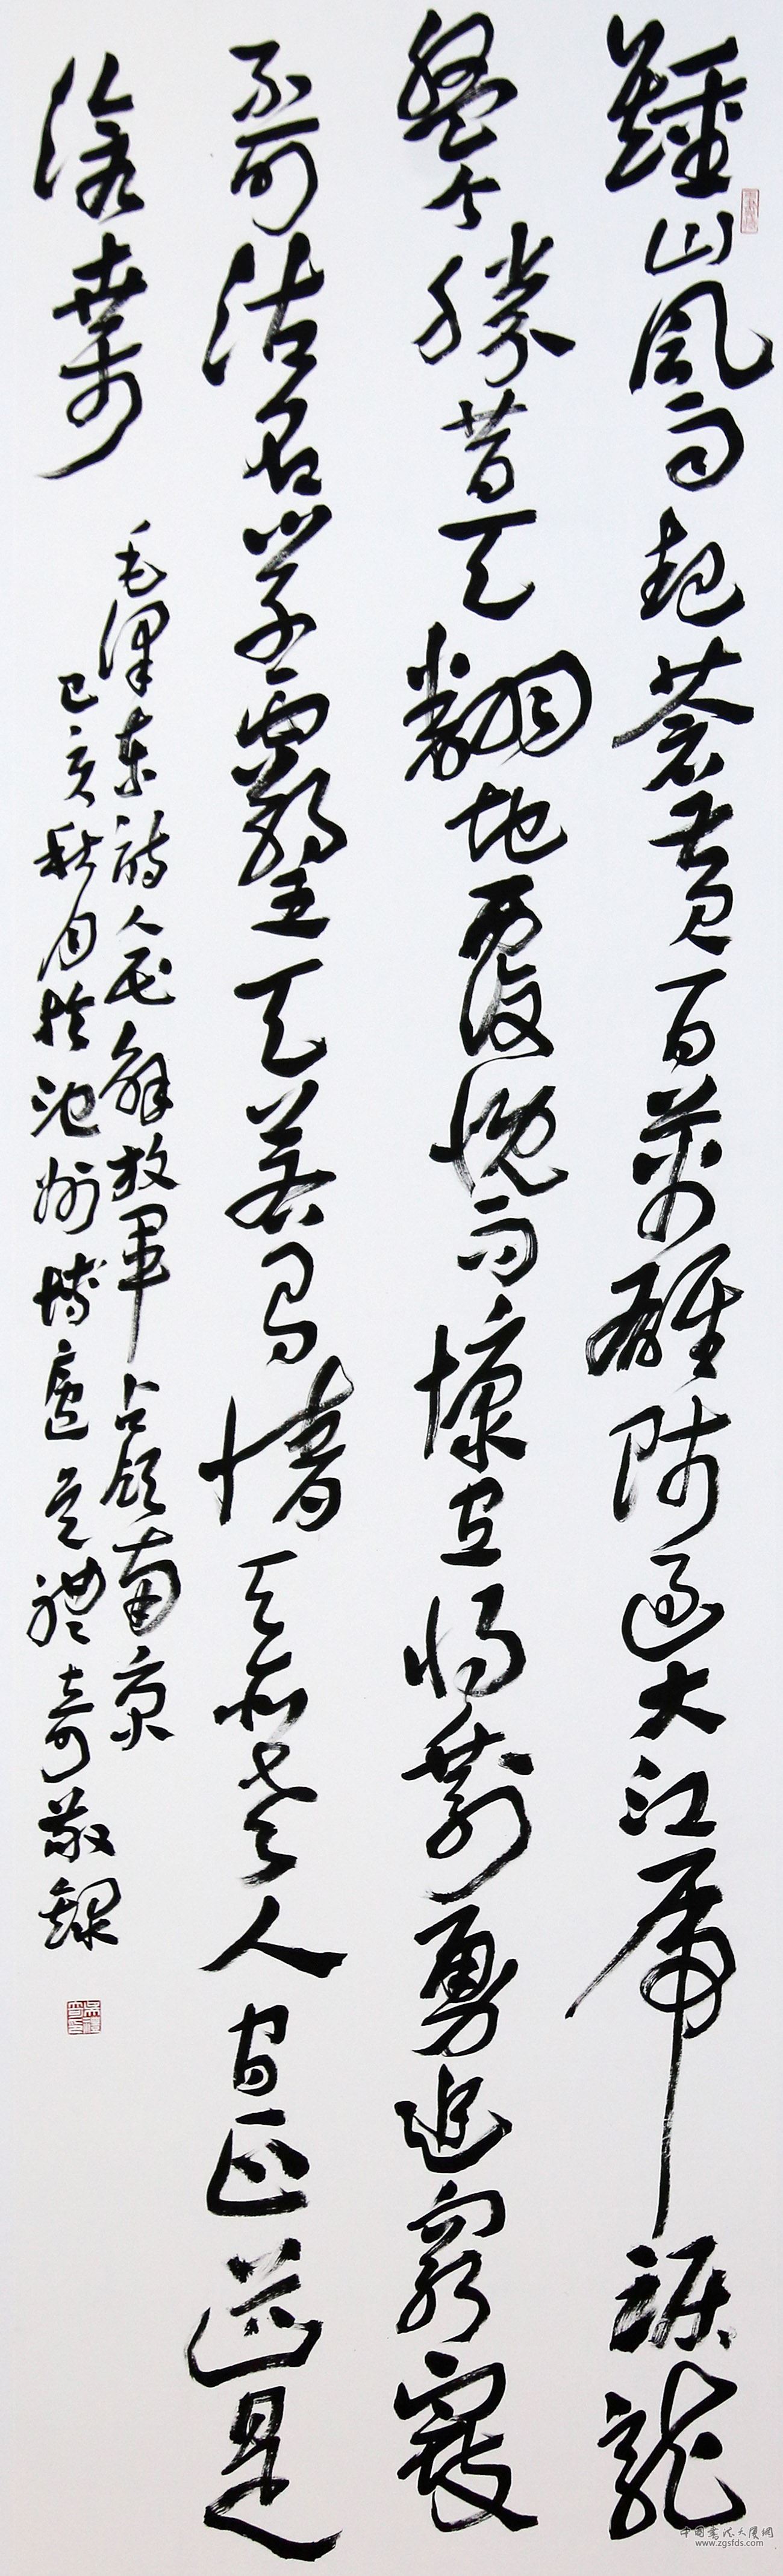 鍾山風雨起蒼黃百萬雄師過大江虎踞龍
盤今勝昔天翻地覆慨而慷宜將剩勇追窮寇
不可沽名學霸王天若有情天亦老人間正道是
滄桑
毛澤東詩人民解放軍占領南京
己亥秋月於池州博廬吳禮奇敬録
中國書法大廈網
www.zgsfds.com